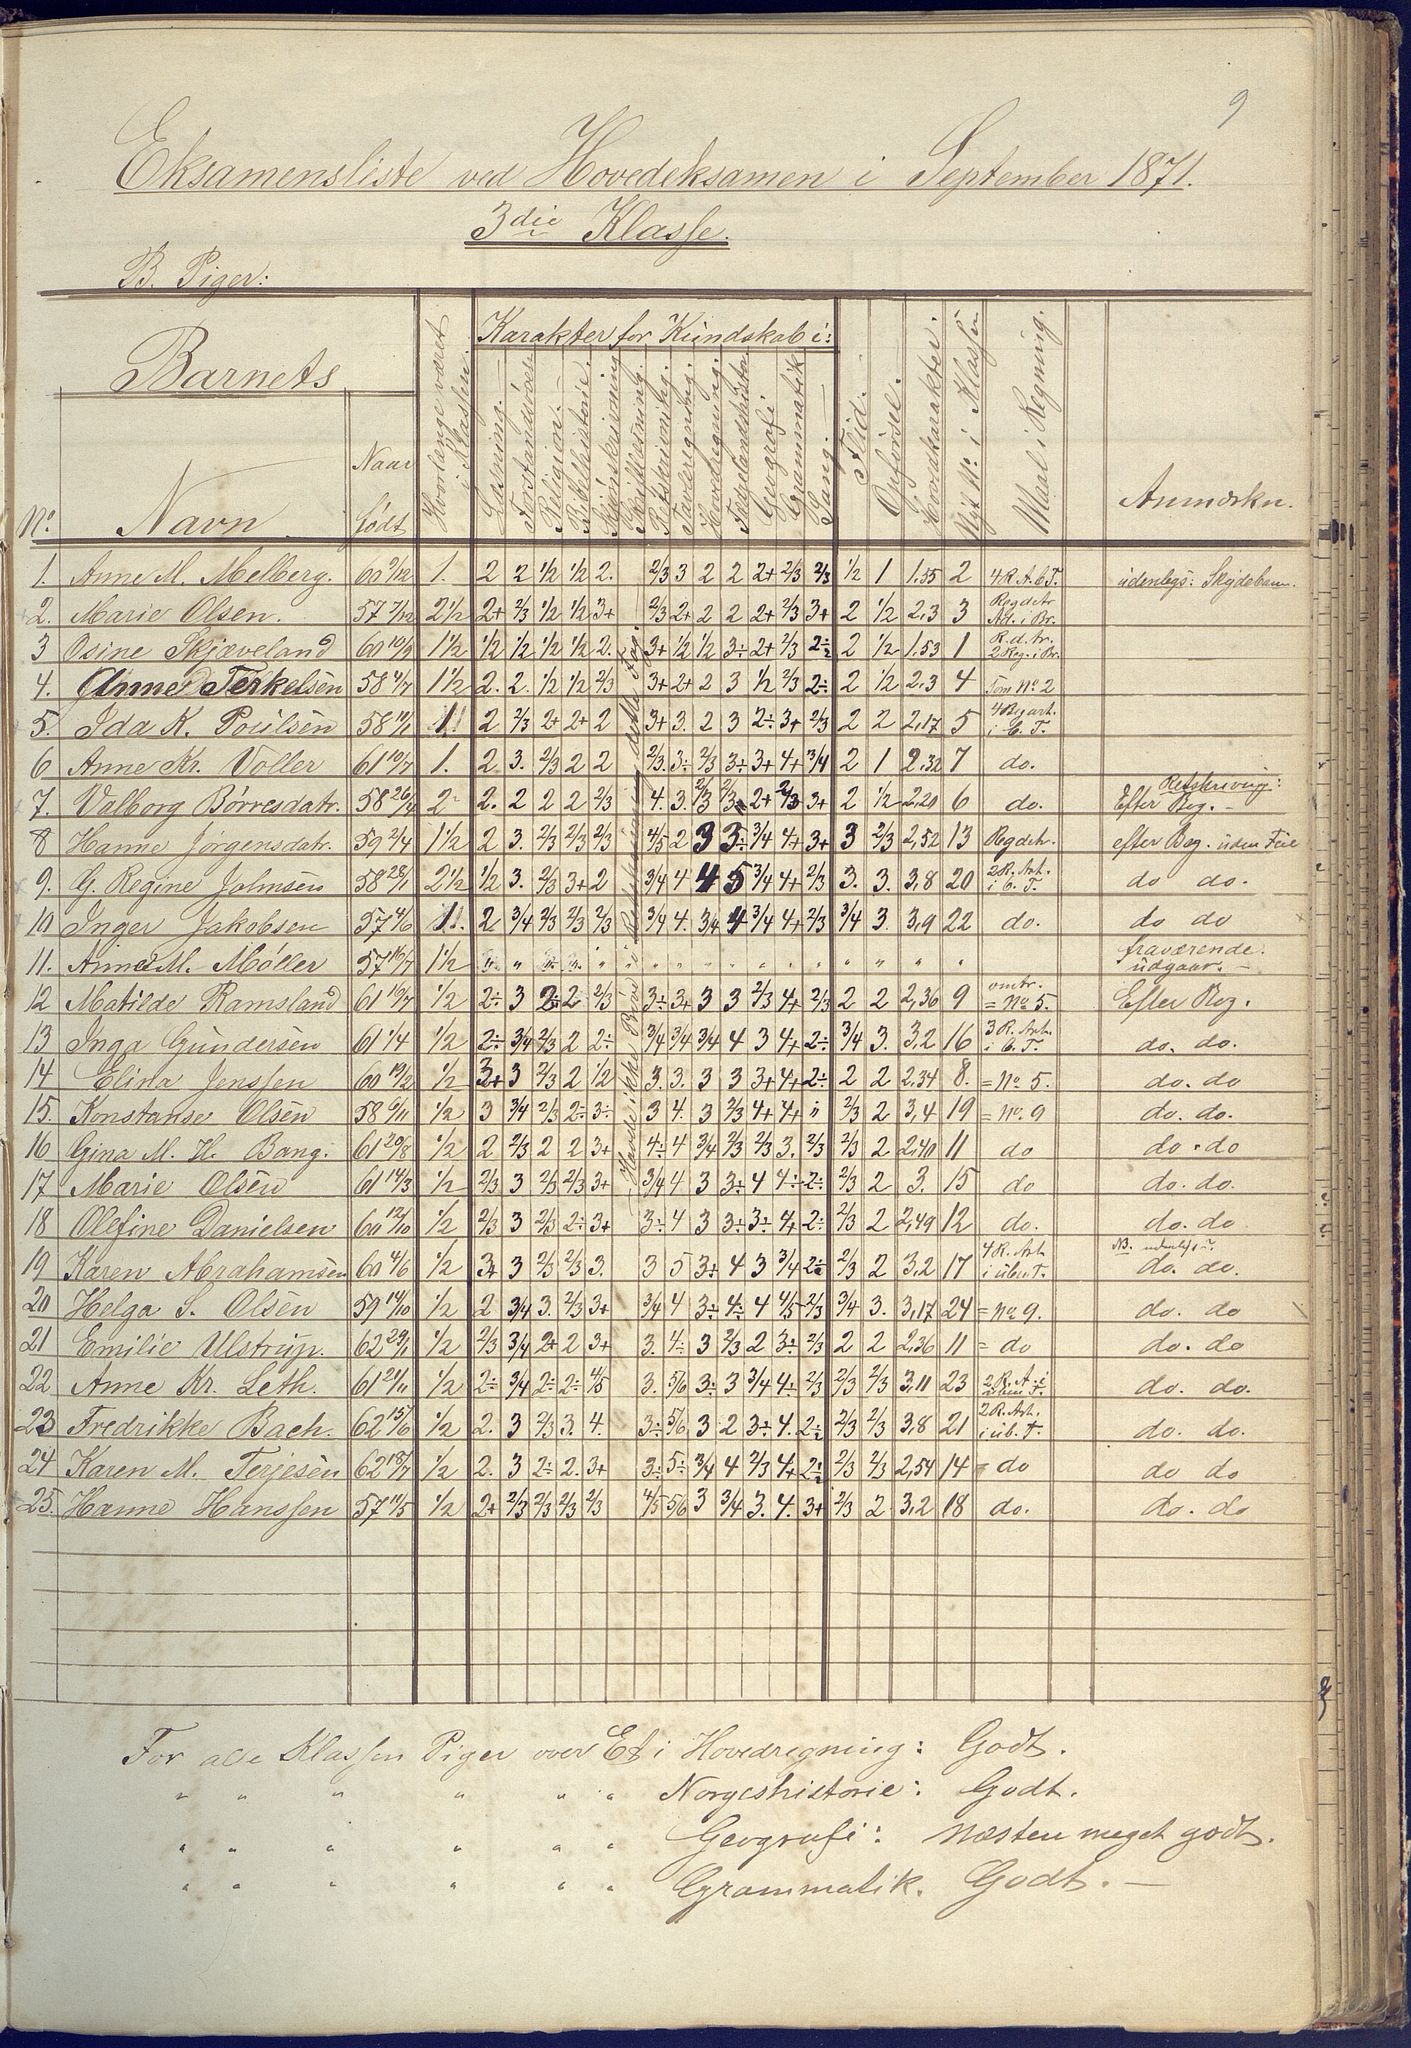 9
Eksamensliste ved Hovedeksamen i September 1871.
3die Klasse.
B. Piger:
Barnets
No. Navn Naar født Hvorlænge været i Klassen. Karakter for Kundskab i: Læsning. Forstandsøvelse Religion. Bibelhistorie. Skjønskrivning Retskrivning. Tavleregning. Hovedregning. Fædrelandshistorie Geografi Grammatik Sang. Flid. Opførsel. Hovedkarakter. Nyt No. i Klassen Maal i Regning. Anmærkn.
Havde ikke Prøve i dette Fag.
1. Anne M. Melberg. 60 9/12 1. 2 2 1/2 1/2 2. 2/3 3 2 2 2+ 2/3 2/3 1/2 1 1.55 2 4 R. A. b. T. udenlegs: Skydebane.
2. Marie Olsen. 57 7/12 2 1/2 2+ 2/3 1/2 1/2 3+ 2/3 2+ 2 2 2+ 2/3 3+ 2 1/2 2,3 3 Regdetr Ad. i Br.
3 Osine Skjæveland 60 10/9 1 1/2 1/2 1/2 1/2 1/2 2. 3+ 1/2 1/2 3÷ 2+ 2/3 2÷ 2 1/2 1.53 1 R. d. tr. 2 Reg. i Br.
4. Anne Terkelsen 58 4/7 1 1/2 2. 2. 1/2 1/2 2/3 3+ 2+ 2 3 1/2 2/3 2÷ 2 1/2 2,3 4 som No 2
5. Ida K. Poulsen 58 19/1 1. 2 2/3 2+ 2+ 2 3+ 3. 2 3 2÷ 3+ 2/3 2 2 2,17 5 4 Regart. i b. T.
6 Anne Kr. Voller 61 10/7 1. 2 3. 2/3 2 2 2/3. 3÷ 2/3 3÷ 3+ 4+ 3/4 2 1 2,32 7 do.
7. Valborg Børresdatr. 58 26/4 2 2. 2 2 2 2/3 4. 3. 2/3 2/3 2+ 2/3 3+ 2 1/2 2,20 6 do. Retskrivning: Efter Reg. -
8 Hanne Jørgensdatr. 59 2/4 1 1/2 2 3. 2/3 2/3 2/3 4/5 2 3 3÷ 3/4 4+ 3+ 3 2/3 2,52 13 Regdetr. efter Reg. uden Feil
9. G. Regine Johnsen 58 28/1 2 1/2 1/2 3. 2/3 3+ 2 3/4 4 4 5 3/4 4+ 2/3 3. 3. 3,8 20 2 R. Art. i b. T. do do.
10 Inger Jakobsen 57 4/6 1. 2 3/4 2/3 2/3 2/3 3/4 4. 3/4 4 3/4 4+ 2/3 3/4 3. 3,9 22 do. do do
11. Anne M. Møller 57 16/7 1 1/2 " " " " " " " " " " " " " " " fraværende. udgaar. -
12 Matilde Ramsland 61 16/7 1/2 2÷ 3 2÷ 2 2/3 3÷ 3+ 3 3 2/3 4+ 2/3 2 2 2,36 9 omtr. = No 5. Efter Reg.
13 Inga Gundersen 61 1/4 1/2 2÷ 3/4 2/3 2 2÷ 3/4 3/4 3/4 4 3 4+ 2÷ 3/4 3. 3,2 16 3 R. Art. i b. T. do. do.
14 Elina Jenssen 60 19/2 1/2 3+ 3 2/3 2 1/2 3. 3. 3 3 3+ 4+ 2÷ 2 2 2,34 8. = No 5. do. do
15. Konstanse Olsen 58 6/11 1/2 3 3/4 2/3 2÷ 3÷ 3 4. 3 2/3 4+ 4+ " 2/3 2 3,4 19 = No. 9 do. do.
16 Gina M. H. Bang. 61 20/8 1/2 2 2/3 2 2 3+ 4÷ 4 3/4 2/3 2/3 3. 2/3 2/3 2 2,40 11 do do. do
17 Marie Olsen 61 14/3 1/2 2/3 3 2/3 2/3 3+ 3/4 4 3 3÷ 4 4÷ 2÷ 2/3 2 3. 15 do do. do.
18 Olefine Danielsen 60 12/10 1/2 2/3 3 2/3 2÷ 3+ 3÷ 4 3 3÷ 3÷ 4+ 2÷ 2/3 2 2,49 12 do. do. do
19 Karen Abrahamsen 60 4/6 1/2 3+ 3 2/3 2/3 3. 3 5 3+ 4 3 3/4 2÷ 2/3 2 3,2 17 4 R. Art. i übn. T. NB. do. do.
20 Helga S. Olsen 59 14/10 1/2 2 3/4 3. 2/3 3+ 3/4 4 3÷ 4÷ 4 4/5 2/3 3/4 3. 3,17 24 = No 9. do. do
21 Emilie Ulstrup. 62 29/1 1/2 2/3 3/4 2+ 2 3+ 3. 4÷ 3 2/3 2 3÷ 2/3 2 2 2,36 11 = do do. do
22 Anne Kr. Leth. 61 21/11 1/2 2÷ 3/4 2÷ 2÷ 4/5 3. 5/6 3÷ 3 3/4 4÷ 2/3 2/3 2/3 3,11 23 2 R. A. i T. do. do.
23 Fredrikke Bach. 62 15/6 1/2 2. 3 2/3 3. 4. 3÷ 5/6 3 2 3÷ 4. 2÷ 2/3 2/3 3,8 21 2 R. Art. i üb. T. do. do.
24 Karen M. Terjesen 62 18/7 1/2 2. 3 2÷ 2. 3+ 3÷ 5÷ 3/4 4 2/3 4+ 2÷ 2/3 2/3 2,54 14 = do do do
25. Hanne Hanssen 57 11/5 1/2 2+ 2/3 2/3 2/3 2/3 4/5 5/6 3 3/4 3. 4. 3+ 2/3 2 3,2 18 do. do. do
For alle Klassen Piger over Et i Hovedregning: Godt.
" " " " " " Norgeshistorie: Godt.
" " " " " " Geografi: Næsten meget godt.
" " " " " " Grammatik. Godt. -